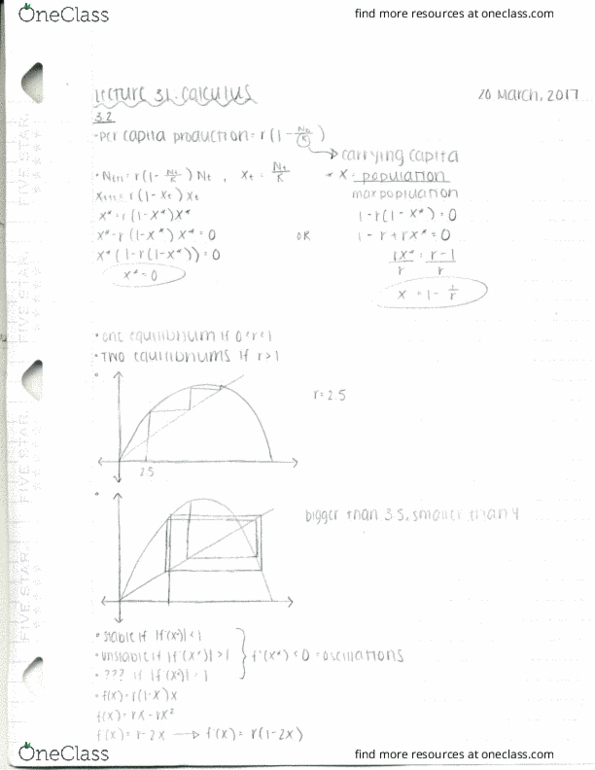 OneClass
find more resources at oneclass.com
Lecture 31: Calculus
20 March, 2017
3.2
• Per capita production = r(1 - Nt/K)
→ carrying capita
• Nt+1 = r(1 - Nt/K) Nt , xt = Nt/K
* x = population / max population
xt+1 = r(1 - xt) xt
x* = r(1-x*)x*
1 - r(1 - x*) = 0
x* - r(1-x*)x* = 0
OR
1 - r + rx* = 0
x*(1 - r(1-x*)) = 0
rx*/r = r-1/r
x* = 0
x = 1 - 1/r
• one equilibrium if 0 < r < 1
• Two equilibriums if r > 1
r = 2.5
2.5
bigger than 3.5, smaller than 4
• stable if |f'(x*)| < 1
• unstable if |f'(x*)| > 1 } f'(x*) < 0 = oscillations
• ??? if |f'(x*)| = 1
• f(x) = r(1-x)x
f(x) = rx - rx²
f'(x) = r - 2x → f'(x) = r(1-2x)
FIVE STAR.
FIVE STAR.
FIVE STAR.
FIVE STAR.
OneClass
find more resources at oneclass.com